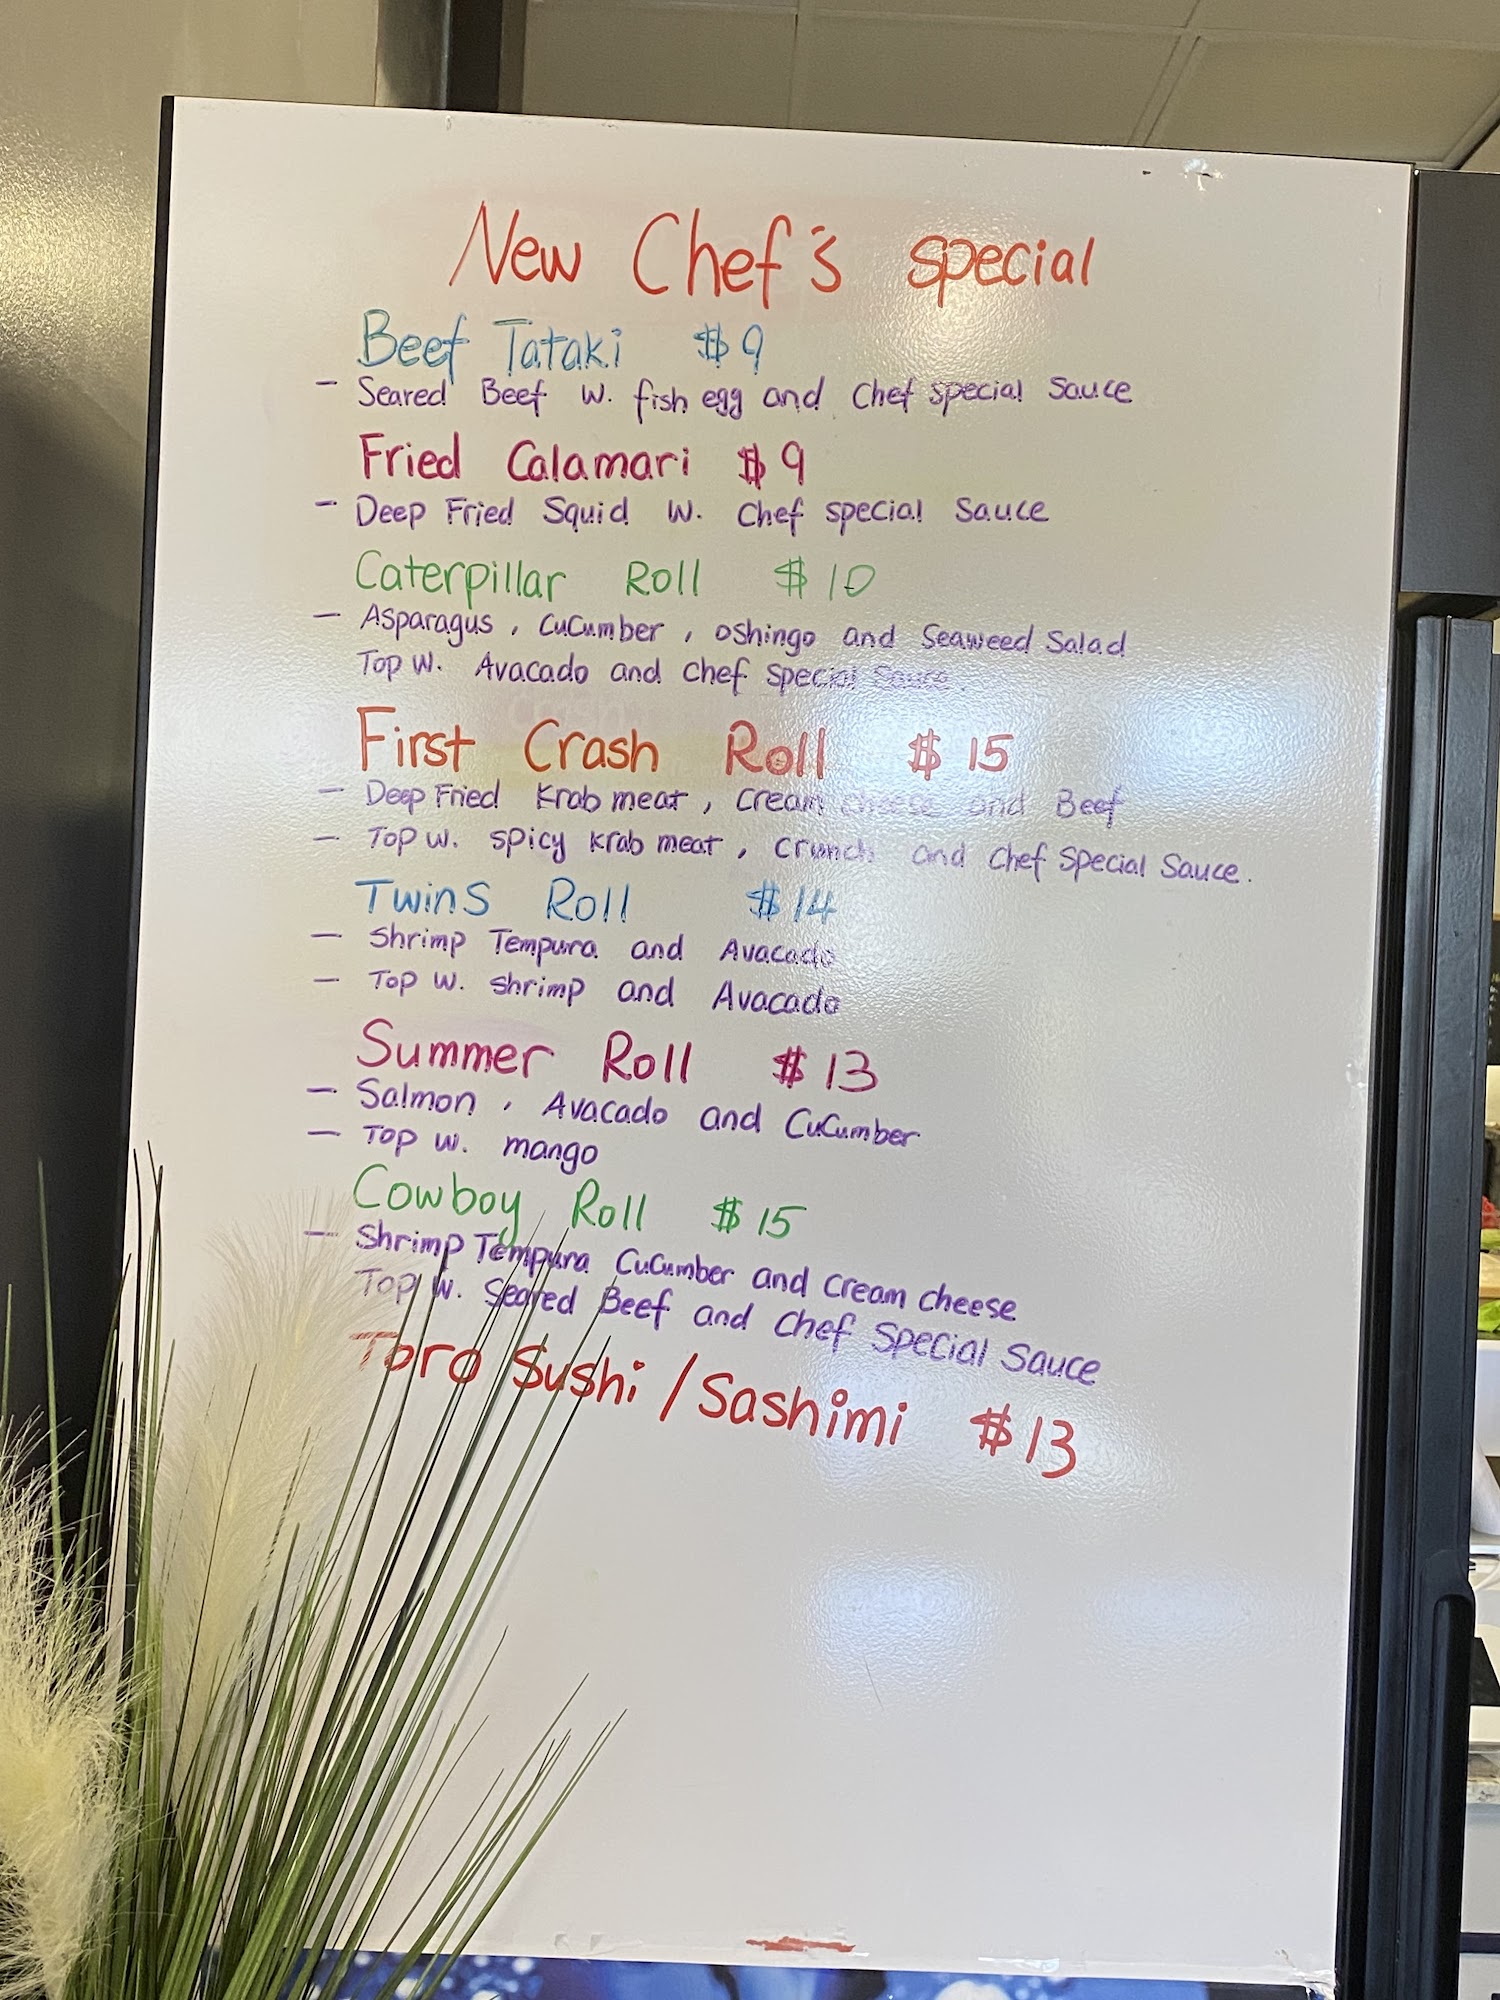 New Chef's special
Beef Tataki $9
- Seared Beef w. fish egg and Chef special Sauce
Fried Calamari $9
- Deep Fried Squid w. Chef special Sauce
Caterpillar Roll $10
- Asparagus, Cucumber, oshingo and Seaweed Salad
Top w. Avacado and Chef special Sauce.
First Crash Roll $15
- Deep Fried Krab meat, Cream cheese and Beef
- Top w. spicy Krab meat, Crunch and Chef Special Sauce.
Twins Roll $14
- Shrimp Tempura and Avacado
- Top w. shrimp and Avacado
Summer Roll $13
- Salmon, Avacado and Cucumber
- Top w. mango
Cowboy Roll $15
- Shrimp Tempura Cucumber and cream cheese
Top w. Seared Beef and Chef Special Sauce
Toro Sushi/Sashimi $13